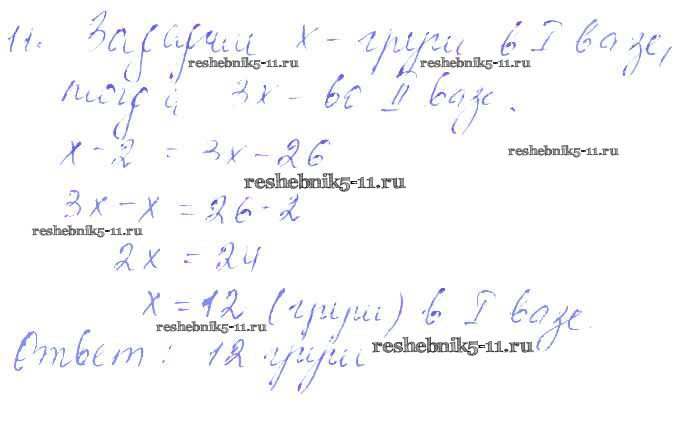 11. Зададим х - груш в I вазе,
reshebnik5-11.ru reshebnik5-11.ru
тогда 3х - во II вазе.
х - 2 = 3х - 26
reshebnik5-11.ru
reshebnik5-11.ru
3х - х = 26 - 2
reshebnik5-11.ru
2х = 24
х = 12 (груш) в I вазе.
reshebnik5-11.ru
Ответ: 12 груш
reshebnik5-11.ru